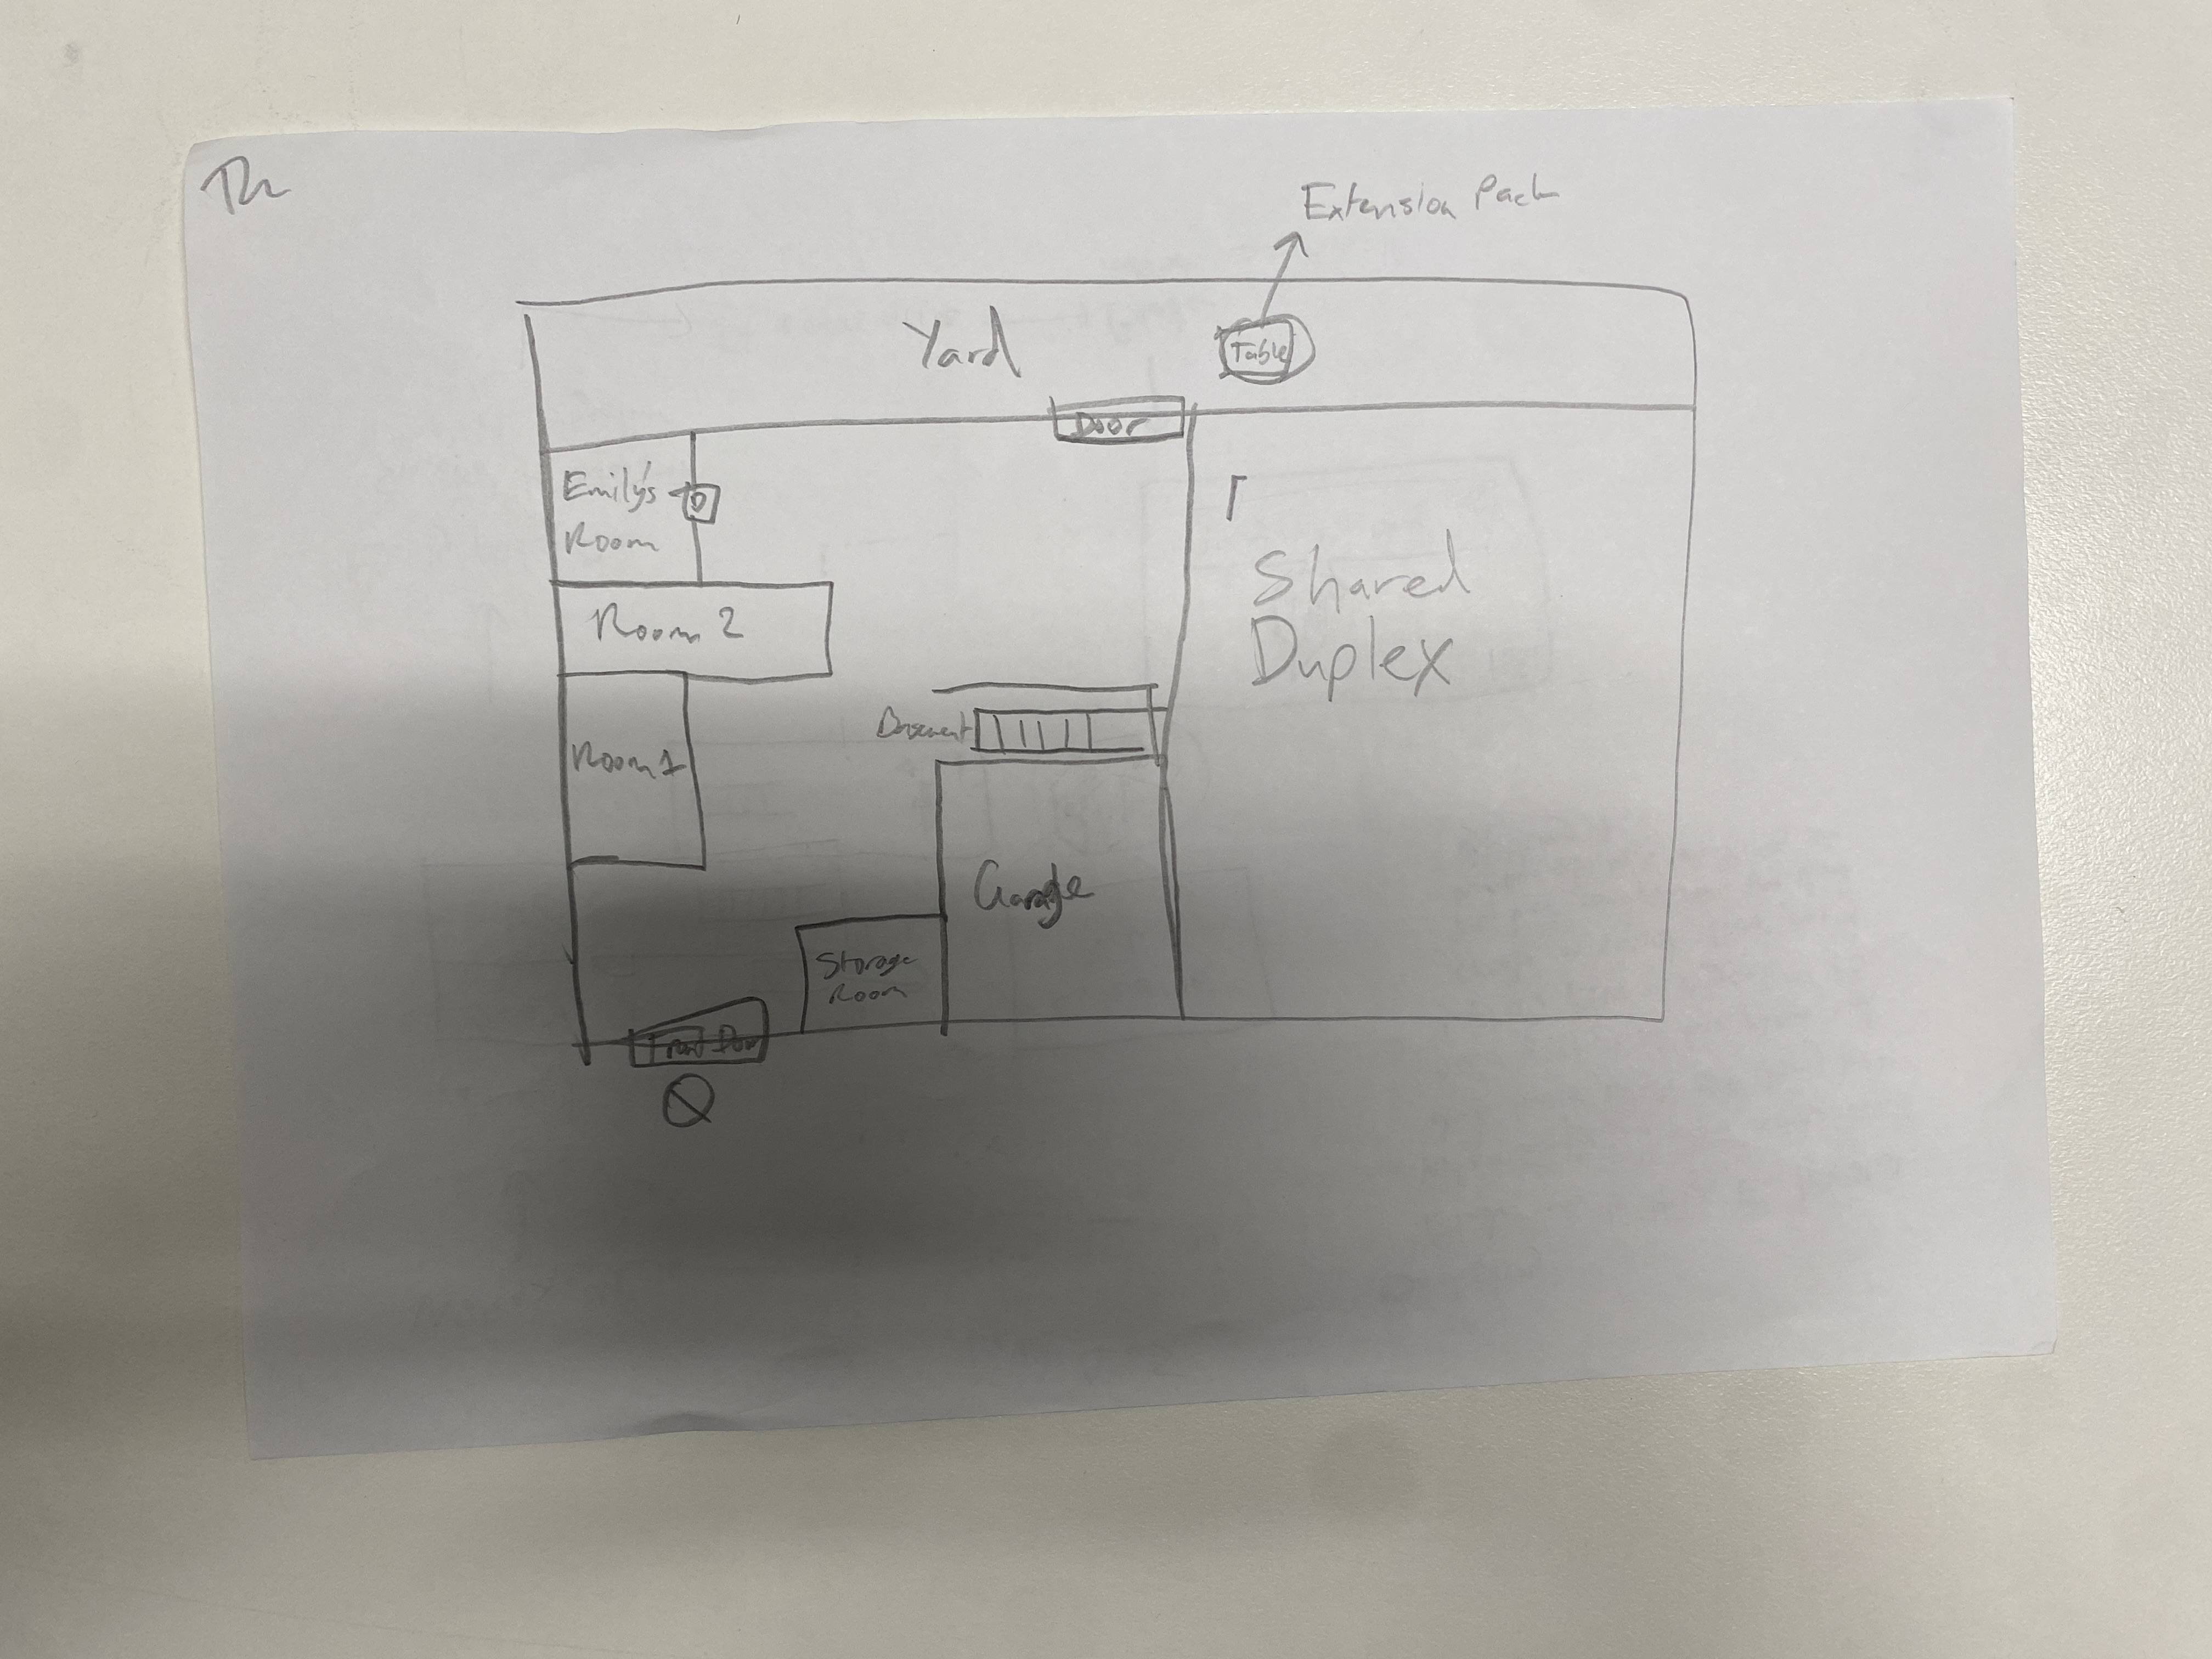 Extension Pack
Yard
Table
Door
Emily's
Room
D
Shared
Duplex
Room 2
Basement
Room 1
Garage
Storage
Room
Front Door